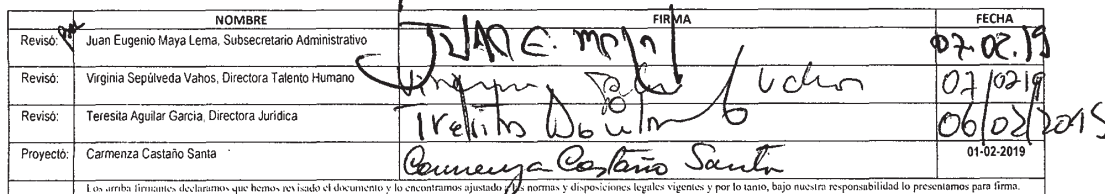 NOMBRE FIRMA FECHA
Revisó: Juan Eugenio Maya Lema, Subsecretario Administrativo JUAN E. MAYA 07.02.19
Revisó: Virginia Sepúlveda Vahos, Directora Talento Humano 07/0219
Revisó: Teresita Aguilar Garcia, Directora Jurídica 06/02/2019
Proyectó: Carmenza Castaño Santa Carmenza Castaño Santa 01-02-2019
Los arriba firmantes declaramos que hemos revisado el documento y lo encontramos ajustado normas y disposiciones legales vigentes y por lo tanto, bajo nuestra responsabilidad lo presentamos para firma.